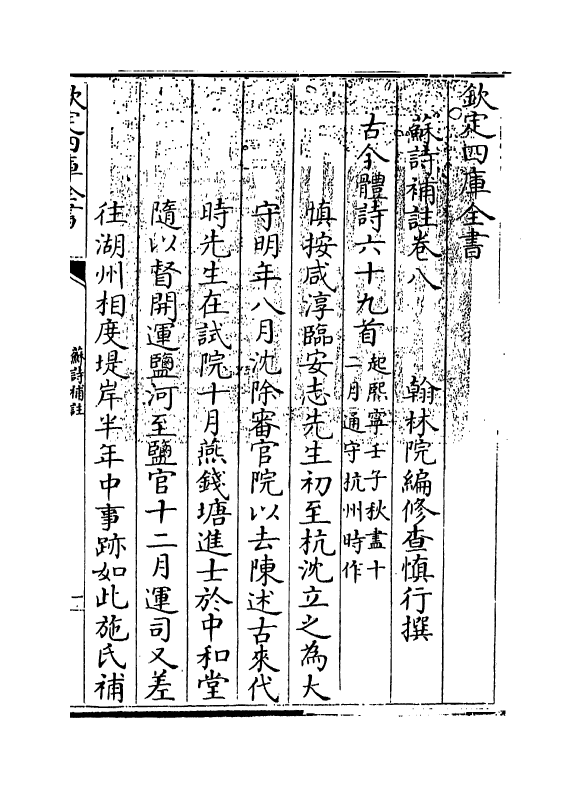 欽定四庫全書
蘇詩補註卷八
翰林院編修查慎行撰
古今體詩六十九首起熙寧壬子秋盡十
二月通守杭州時作
慎按咸淳臨安志先生初至杭沈立之為大
守明年八月沈除審官院以去陳述古來代
時先生在試院十月燕錢塘進士於中和堂
隨以督開運鹽河至鹽官十二月運司又差
往湖州相度堤岸半年中事跡如此施氏補
欽定四庫全書
蘇詩補註
一